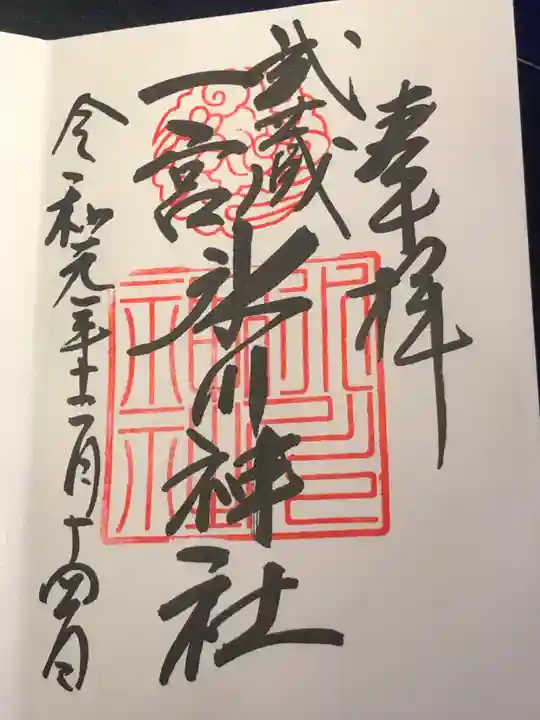 奉拝
武蔵
一宮
氷川神社
令和元年十一月十四日